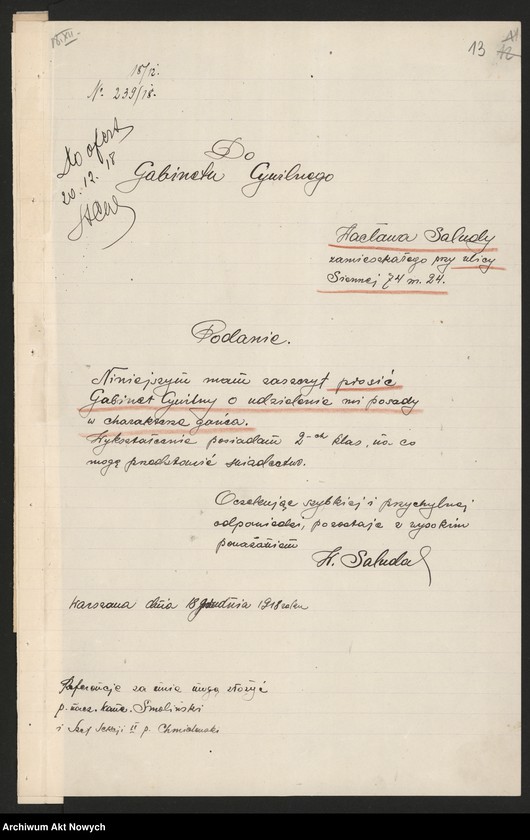 18.XII.
13
18/12.
N: 239/18.
Do ofert
20.12.18
Do
Gabinetu Cywilnego
Wacława Saludy
zamieszkałego przy ulicy
Siennej 74 m. 24.
Podanie.
Niniejszym mam zaszczyt prosić
Gabinet Cywilny o udzielenie mi posady
w charakterze gońca.
Wykształcenie posiadam 2-ch klas, na co
mogę przedstawić świadectwo.
Oczekując szybkiej i przychylnej
odpowiedzi, pozostaję z wysokim
poważaniem
W. Saluda
Warszawa dnia 18 grudnia 1918 roku
Referencje za mnie mogą złożyć
p. nacz. kanc. Smoliński
i Szef Sekcji II p. Chmielewski
Archiwum Akt Nowych